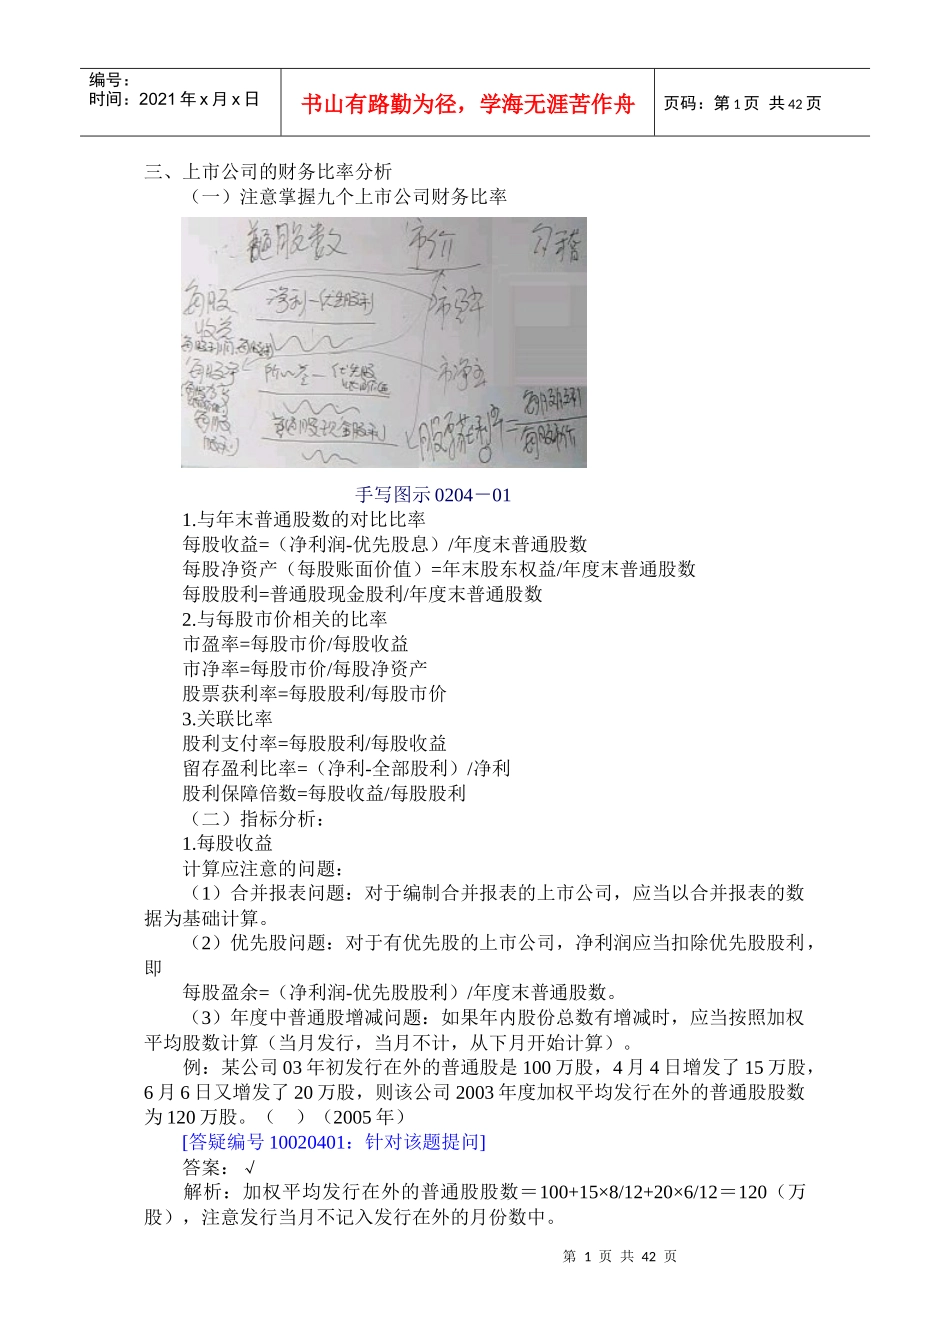 编号：
时间：2021年x月x日
书山有路勤为径，学海无涯苦作舟
页码：第1页 共42页
三、上市公司的财务比率分析
（一）注意掌握九个上市公司财务比率
普通股数 市价 勾稽
每股收益 净利－优先股利 市盈率
每股净 所－益－优先股 市净率
每股股利 普通股现金股利 股票获利率=每股股利/每股市价
手写图示0204－01
1.与年末普通股数的对比比率
每股收益=（净利润-优先股息）/年度末普通股数
每股净资产（每股账面价值）=年末股东权益/年度末普通股数
每股股利=普通股现金股利/年度末普通股数
2.与每股市价相关的比率
市盈率=每股市价/每股收益
市净率=每股市价/每股净资产
股票获利率=每股股利/每股市价
3.关联比率
股利支付率=每股股利/每股收益
留存盈利比率=（净利-全部股利）/净利
股利保障倍数=每股收益/每股股利
（二）指标分析：
1.每股收益
计算应注意的问题：
（1）合并报表问题：对于编制合并报表的上市公司，应当以合并报表的数
据为基础计算。
（2）优先股问题：对于有优先股的上市公司，净利润应当扣除优先股股利，
即
每股盈余=（净利润-优先股股利）/年度末普通股数。
（3）年度中普通股增减问题：如果年内股份总数有增减时，应当按照加权
平均股数计算（当月发行，当月不计，从下月开始计算）。
例：某公司03年初发行在外的普通股是100万股，4月4日增发了15万股，
6月6日又增发了20万股，则该公司2003年度加权平均发行在外的普通股股数
为120万股。（ ）（2005年）
[答疑编号10020401：针对该题提问]
答案：√
解析：加权平均发行在外的普通股股数＝100+15×8/12+20×6/12＝120（万
股），注意发行当月不记入发行在外的月份数中。
第 1 页 共 42 页